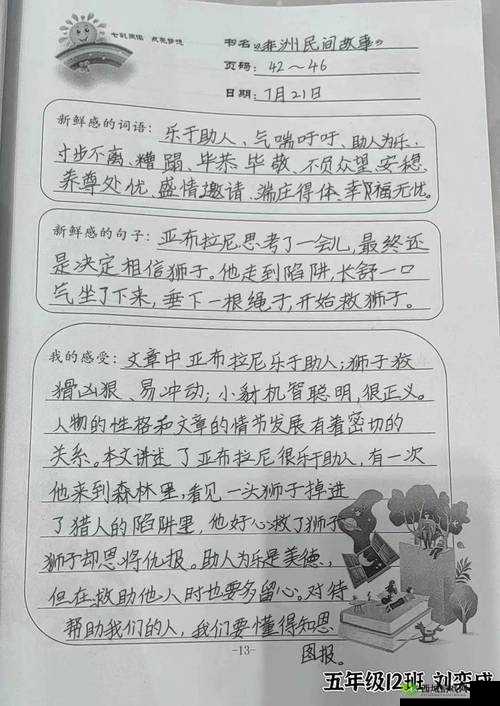 七彩阅读 点亮梦想
书名《非洲民间故事》
页码：42～46
日期：7月21日
新鲜感的词语：乐于助人、气喘吁吁、助人为乐、
寸步不离、糟蹋、毕恭毕敬、不负众望、安稳、
养尊处优、盛情邀请、端庄得体、幸福无比。
新鲜感的句子：亚布拉尼思考了一会儿，最终还
是决定相信狮子。他走到陷阱，长舒一口
气坐了下来，垂下一根绳子，开始救狮子。
我的感受：文章中亚布拉尼乐于助人；狮子狡
猾凶狠、易冲动；小豺机智聪明，很正义。
人物的性格和文章的情节发展有着密切的
关系。本文讲述了亚布拉尼很乐于助人，有一次
他来到森林里，看见一头狮子掉进
了猎人的陷阱里，他好心救了狮子
狮子却恩将仇报。助人为乐是美德，
但在救助他人时也要多留心。对待
帮助我们的人，我们要懂得知恩
图报。
-13-
五年级12班 刘奕成